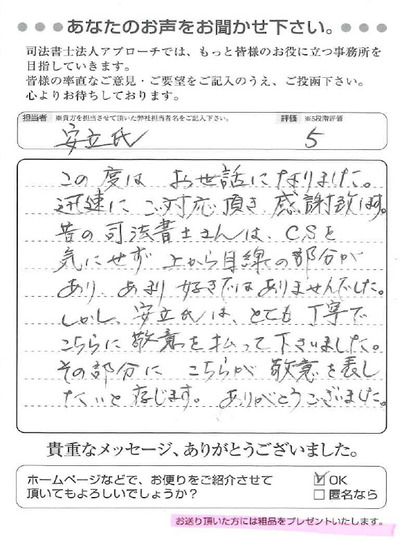 あなたのお声をお聞かせ下さい。
司法書士法人アプローチでは、もっと皆様のお役に立つ事務所を
目指していきます。
皆様の率直なご意見・ご要望をご記入のうえ、ご投函下さい。
心よりお待ちしております。
担当者 ※貴方を担当させて頂いた弊社担当者名をご記入下さい。 評価 ※5段階評価
安立氏 5
この度は お世話になりました。
迅速に ご対応頂き 感謝致します。
昔の司法書士さんは、CSを
気にせず 上から目線の部分が
あり、あまり好きではありませんでした。
しかし、安立氏は、とても 丁寧で
こちらに 敬意を払って下さいました。
その部分に こちらが 敬意を表し
たいと存じます。 ありがとうございました。
貴重なメッセージ、ありがとうございました。
ホームページなどで、お便りをご紹介させて
頂いてもよろしいでしょうか？
OK
匿名なら
お送り頂いた方には粗品をプレゼントいたします。